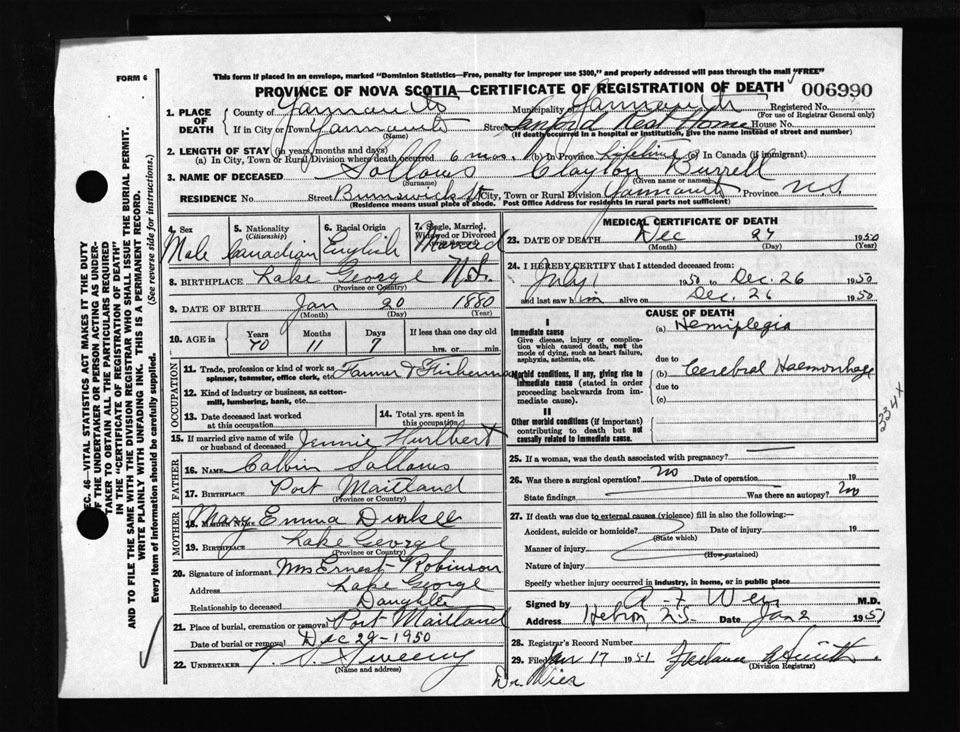 FORM 6
This form if placed in an envelope, marked "Dominion Statistics—Free, penalty for improper use $300," and properly addressed will pass through the mail "FREE"
PROVINCE OF NOVA SCOTIA—CERTIFICATE OF REGISTRATION OF DEATH 006990
1. PLACE OF DEATH County of Yarmouth Municipality of Yarmouth Registered No.
(For use of Registrar General only)
If in City or Town Yarmouth Street Sanford Rest Home House No.
(Name) (If death occurred in a hospital or institution, give the name instead of street and number)
2. LENGTH OF STAY (in years, months and days)
(a) In City, Town or Rural Division where death occurred 6 mos. (b) In Province Lifetime (c) In Canada (if immigrant)
3. NAME OF DECEASED Sollows Clayton Burrell
(Surname) (Given name or names)
RESIDENCE No. Street Brunswick St City, Town or Rural Division Yarmouth Province N.S.
(Residence means usual place of abode. Post Office Address for residents in rural parts not sufficient)
4. Sex 5. Nationality (Citizenship) 6. Racial Origin 7. Single, Married, Widowed or Divorced
Male Canadian English Married
8. BIRTHPLACE Lake George N.S.
(Province or Country)
9. DATE OF BIRTH Jan 20 1880
(Month) (Day) (Year)
10. AGE in Years Months Days If less than one day old
70 11 7 hrs. or min.
OCCUPATION
11. Trade, profession or kind of work as spinner, teamster, office clerk, etc. Farmer & Fisherman
12. Kind of industry or business, as cotton-mill, lumbering, bank, etc.
13. Date deceased last worked at this occupation
14. Total yrs. spent in this occupation
15. If married give name of wife or husband of deceased Jennie Hurlbert
FATHER
16. NAME Calvin Sollows
17. BIRTHPLACE Port Maitland
(Province or Country)
MOTHER
18. MAIDEN NAME Mary Emma Durkee
19. BIRTHPLACE Lake George
(Province or Country)
20. Signature of informant Mrs Ernest Robinson
Address Lake George
Relationship to deceased Daughter
21. Place of burial, cremation or removal Port Maitland
Date of burial or removal Dec 29-1950
22. UNDERTAKER Sweeny
(Name and address)
MEDICAL CERTIFICATE OF DEATH
23. DATE OF DEATH Dec 27 1950
(Month) (Day) (Year)
24. I HEREBY CERTIFY that I attended deceased from:
July 1 1950 to Dec. 26 1950
and last saw him alive on Dec. 26 1950
CAUSE OF DEATH
I
Immediate cause (a) Hemiplegia
Give disease, injury or complication which caused death, not the mode of dying, such as heart failure, asphyxia, asthenia, etc.
due to
Morbid conditions, if any, giving rise to immediate cause (stated in order proceeding backwards from immediate cause).
(b) Cerebral Haemorrhage
due to
(c)
II
Other morbid conditions (if important) contributing to death but not causally related to immediate cause.
334 x
25. If a woman, was the death associated with pregnancy?
26. Was there a surgical operation? no Date of operation 19
State findings Was there an autopsy? no
27. If death was due to external causes (violence) fill in also the following:—
Accident, suicide or homicide? Date of injury 19
(State which)
Manner of injury
(How sustained)
Nature of injury
Specify whether injury occurred in industry, in home, or in public place
Signed by A F Weir M.D.
Address Hebron, N.S. Date Jan 2 1951
28. Registrar's Record Number
29. Filed Jan 17 1951
(Division Registrar)
Dr. Weir
SEC. 46—VITAL STATISTICS ACT MAKES IT THE DUTY
OF THE UNDERTAKER OR PERSON ACTING AS UNDER-
TAKER TO OBTAIN ALL THE PARTICULARS REQUIRED
IN THE "CERTIFICATE OF REGISTRATION OF DEATH"
AND TO FILE THE SAME WITH THE DIVISION REGISTRAR WHO SHALL ISSUE THE BURIAL PERMIT.
WRITE PLAINLY WITH UNFADING INK. THIS IS A PERMANENT RECORD.
Every item of information should be carefully supplied. (See reverse side for instructions.)